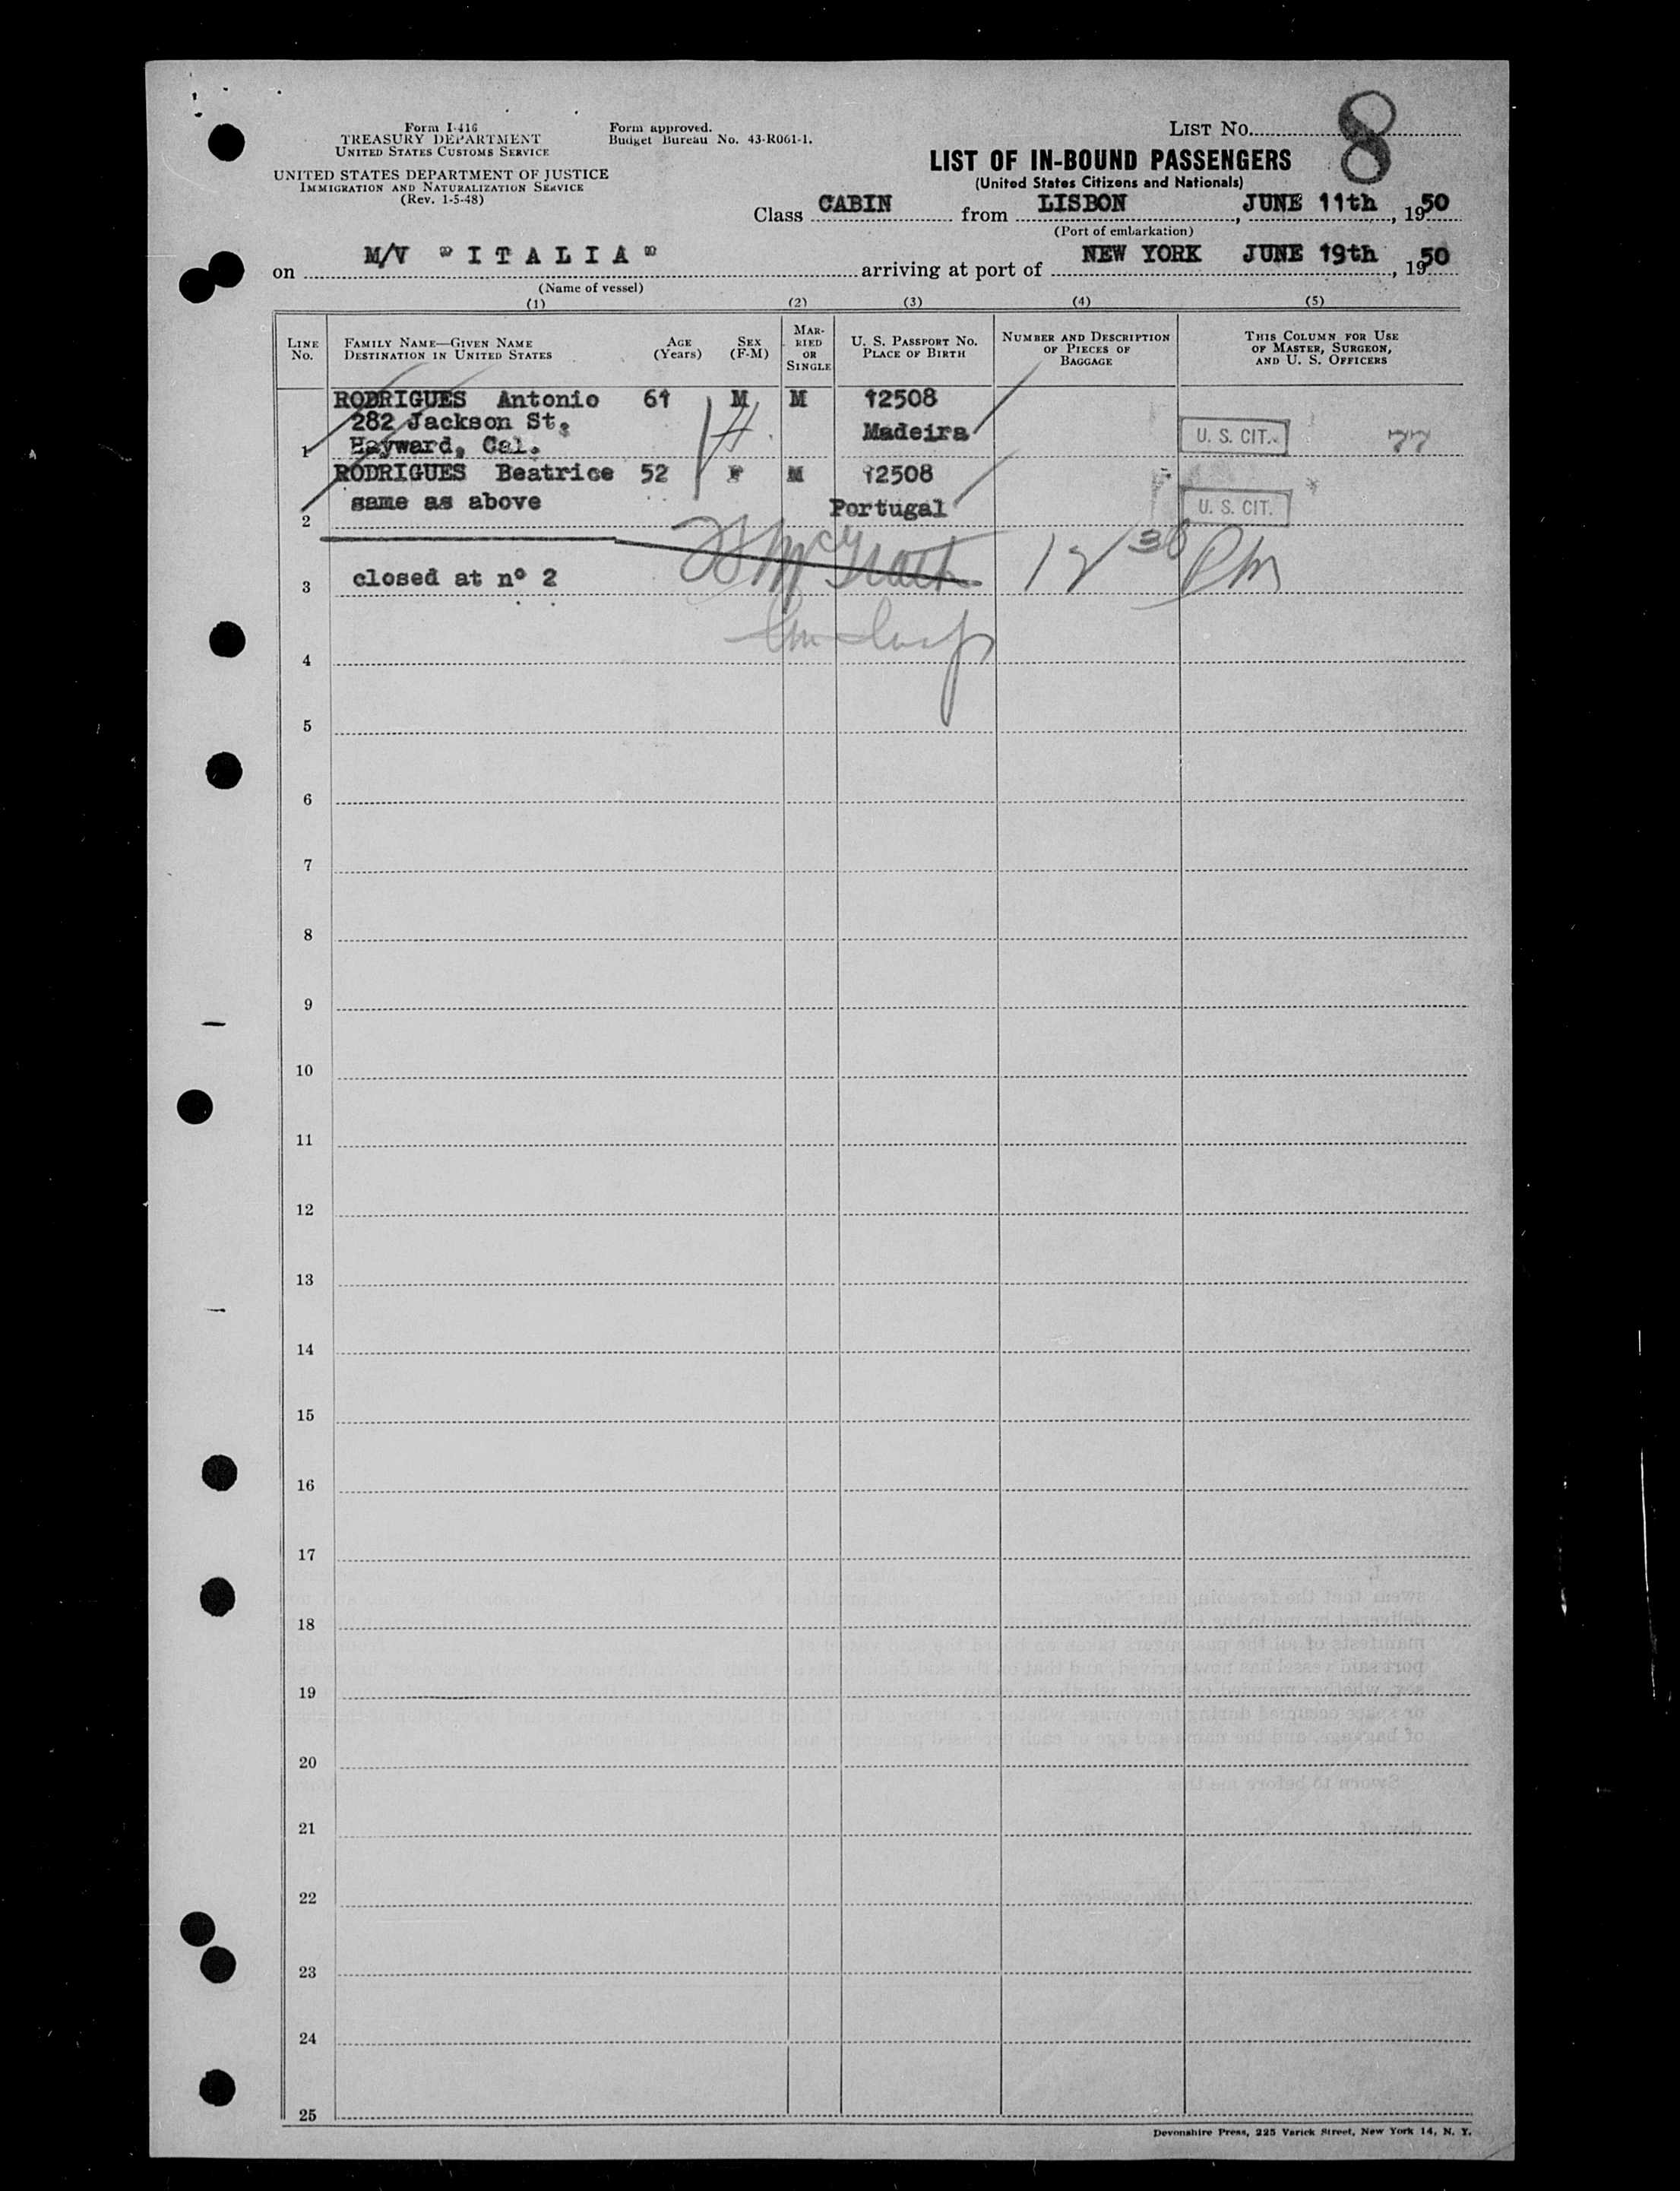 Form I-416
TREASURY DEPARTMENT
UNITED STATES CUSTOMS SERVICE
UNITED STATES DEPARTMENT OF JUSTICE
IMMIGRATION AND NATURALIZATION SERVICE
(Rev. 1-5-48)
Form approved.
Budget Bureau No. 43-R061-1.
LIST NO. 8
LIST OF IN-BOUND PASSENGERS
(United States Citizens and Nationals)
Class CABIN from LISBON, JUNE 11th, 1950
(Port of embarkation)
on M/V "ITALIA" arriving at port of NEW YORK JUNE 19th, 1950
(Name of vessel)
(1) (2) (3) (4) (5)
LINE NO.
FAMILY NAME—GIVEN NAME
DESTINATION IN UNITED STATES
AGE (Years)
SEX (F-M)
MARRIED OR SINGLE
U. S. PASSPORT NO.
PLACE OF BIRTH
NUMBER AND DESCRIPTION OF PIECES OF BAGGAGE
THIS COLUMN FOR USE OF MASTER, SURGEON, AND U. S. OFFICERS
RODRIGUES Antonio 61 M M 12508
282 Jackson St. Madeira
1 Hayward, Cal. U. S. CIT. 77
RODRIGUES Beatrice 52 F M 12508
same as above Portugal U. S. CIT.
2
McGrath 12 30 PM
3 closed at nº 2
4
5
6
7
8
9
10
11
12
13
14
15
16
17
18
19
20
21
22
23
24
25
Devonshire Press, 225 Varick Street, New York 14, N. Y.